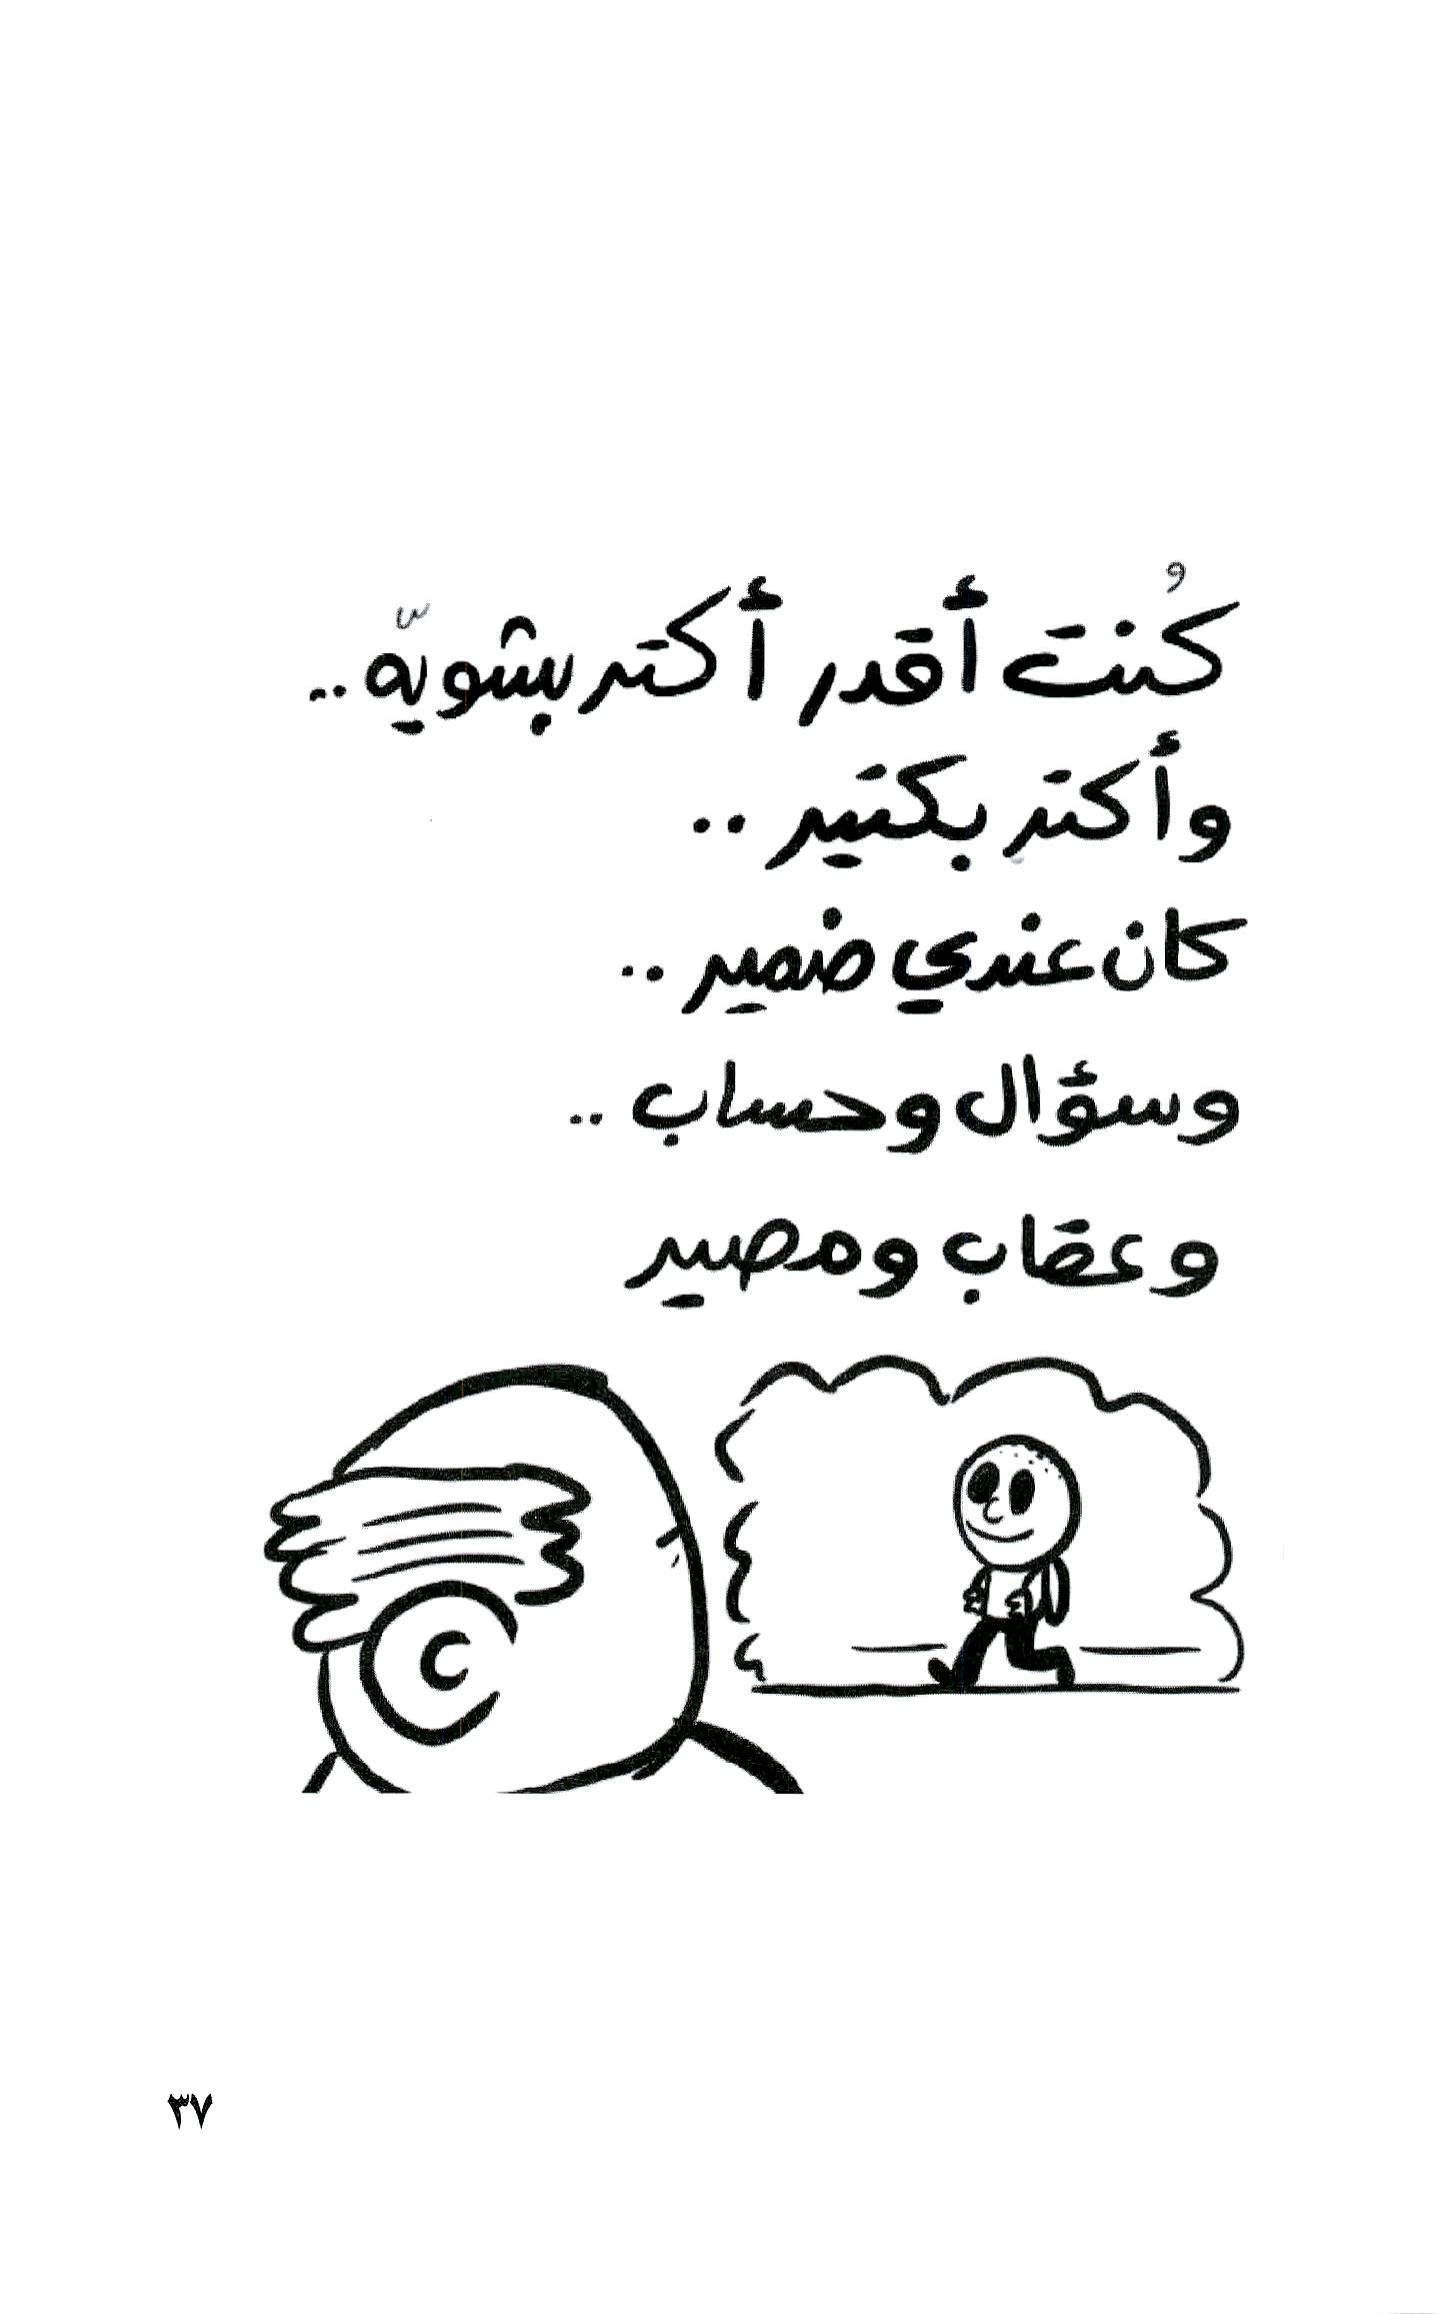 كُنت أقدر أكتر بشويّه ..
وأكتر بكتير ..
كان عندي ضمير ..
وسؤال وحساب ..
وعقاب ومصير
٣٧